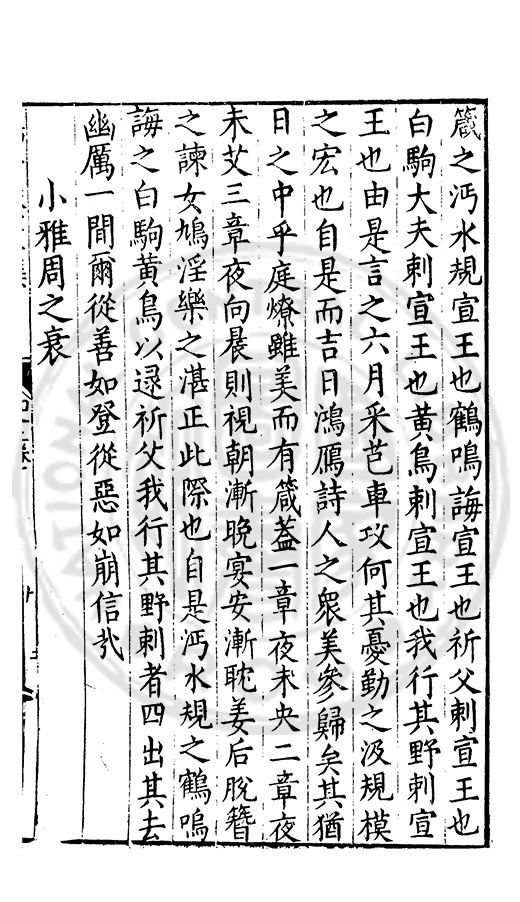 箴之沔水規宣王也鶴鳴誨宣王也祈父刺宣王也
白駒大夫刺宣王也黃鳥刺宣王也我行其野刺宣
王也由是言之六月采芑車攻何其憂勤之汲規模
之宏也自是而吉日鴻鴈詩人之衆美參歸矣其猶
日之中乎庭燎雖美而有箴蓋一章夜未央二章夜
未艾三章夜向晨則視朝漸晚宴安漸耽姜后脫簪
之諫女鳩淫樂之湛正此際也自是沔水規之鶴鳴
誨之白駒黃鳥以逯祈父我行其野刺者四出其去
幽厲一間爾從善如登從惡如崩信夶
小雅周之衰